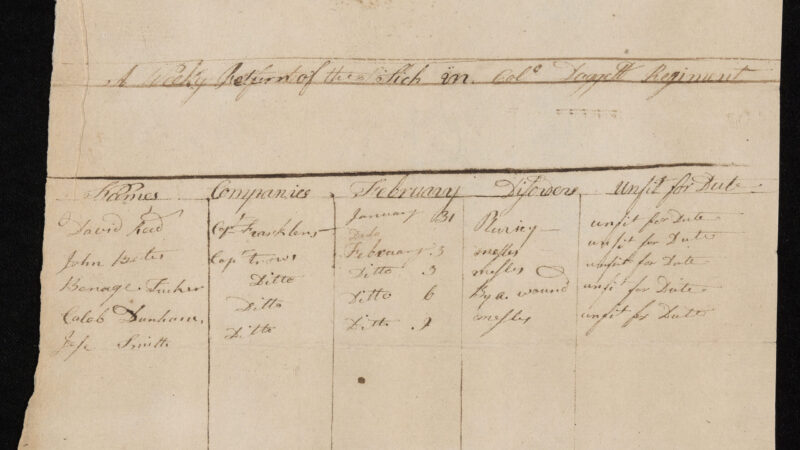 A Weeky Return of the Sick in Colo Doggett Regiment
Names Companies February Disorders Unfit for Dute
David Reed Capt Franklens January 31 Plurisy unfit for Dute
John Bates Capt February 3 mesles unfit for Dute
Benage Tucker Ditto Ditto 3 mesles unfit for Dute
Caleb Dunham Ditto Ditto 6 By a wound unfit for Dute
Jese Smith Ditto Ditto 9 mesles unfit for Dute